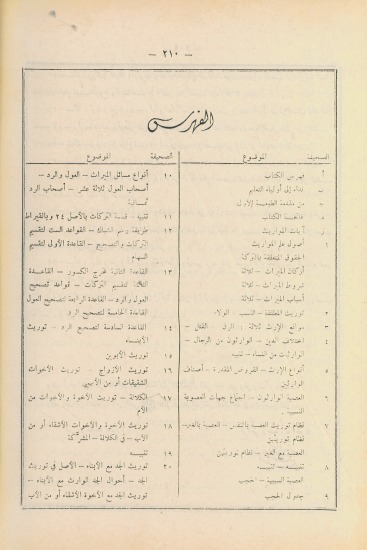 — ٢١٠ —
الفهرس
الصحيفة الموضوع
أ فهرس الكتاب
ب نداء إلى أولياء التعليم
ج من مقدمة الطبعة الأولى
د فاتحة الكتاب
هـ آيات المواريث
١ أصول علم المواريث
الحقوق المتعلقة بالتركة
أركان الميراث – ثلاثة
شروط الميراث – ثلاثة
أسباب الميراث – ثلاثة
٢ توريث المطلقة – النسب – الولاء
٣ موانع الإرث ثلاثة : الرق – القتل –
٤ اختلاف الدين – الوارثون من الرجال –
الوارثات من النساء – تنبيه
٥ أنواع الإرث – الفروض المقدرة – أصناف
الوارثين
٦ العصبة الوارثون – اجتماع جهات العصوبة
النسبية
٧ نظام توريث العصبة بالنفس – العصبة بالغير –
نظام توريثين
العصبة مع الغير – نظام توريثين
٨ تقسيمه – تقسيمه
العصبة السببية – الحجب
٩ جدول الحجب
الصحيفة الموضوع
١٠ أنواع مسائل الميراث – العول والرد –
أصحاب العول ثلاثة عشر – أصحاب الرد
ثمانية
١١ تنبيه – قسمة التركات بالأصل ٢٤ وبالقيراط
١٢ طريقة رسم الشباك – القواعد الست لتقسيم
التركات والتصحيح – القاعدة الأولى لتقسيم
السهام
١٣ القاعدة الثانية لمخرج الكسور – القاعدة
لتقسيم التركات – قواعد تصحيح
العول والرد – القاعدة الرابعة لتصحيح العول
القاعدة الخامسة لتصحيح الرد
١٤ القاعدة السادسة لتصحيح الرد – توريث
الأبناء
١٥ توريث الأبوين
١٦ توريث الأزواج – توريث الأخوات
الشقيقات أو من الأبي
١٧ الكلالة – توريث الأخوة والأخوات من
الأم
١٨ توريث الأخوة والأخوات الأشقاء أو من
الأب – في الكلالة – المشركة
١٩ تقسيمه
٢٠ توريث الجد مع الأبناء – الأصل في توريث
الجد – أحوال الجد الوارث مع الأبناء –
توريث الجد مع الأخوة الأشقاء أو من الأب